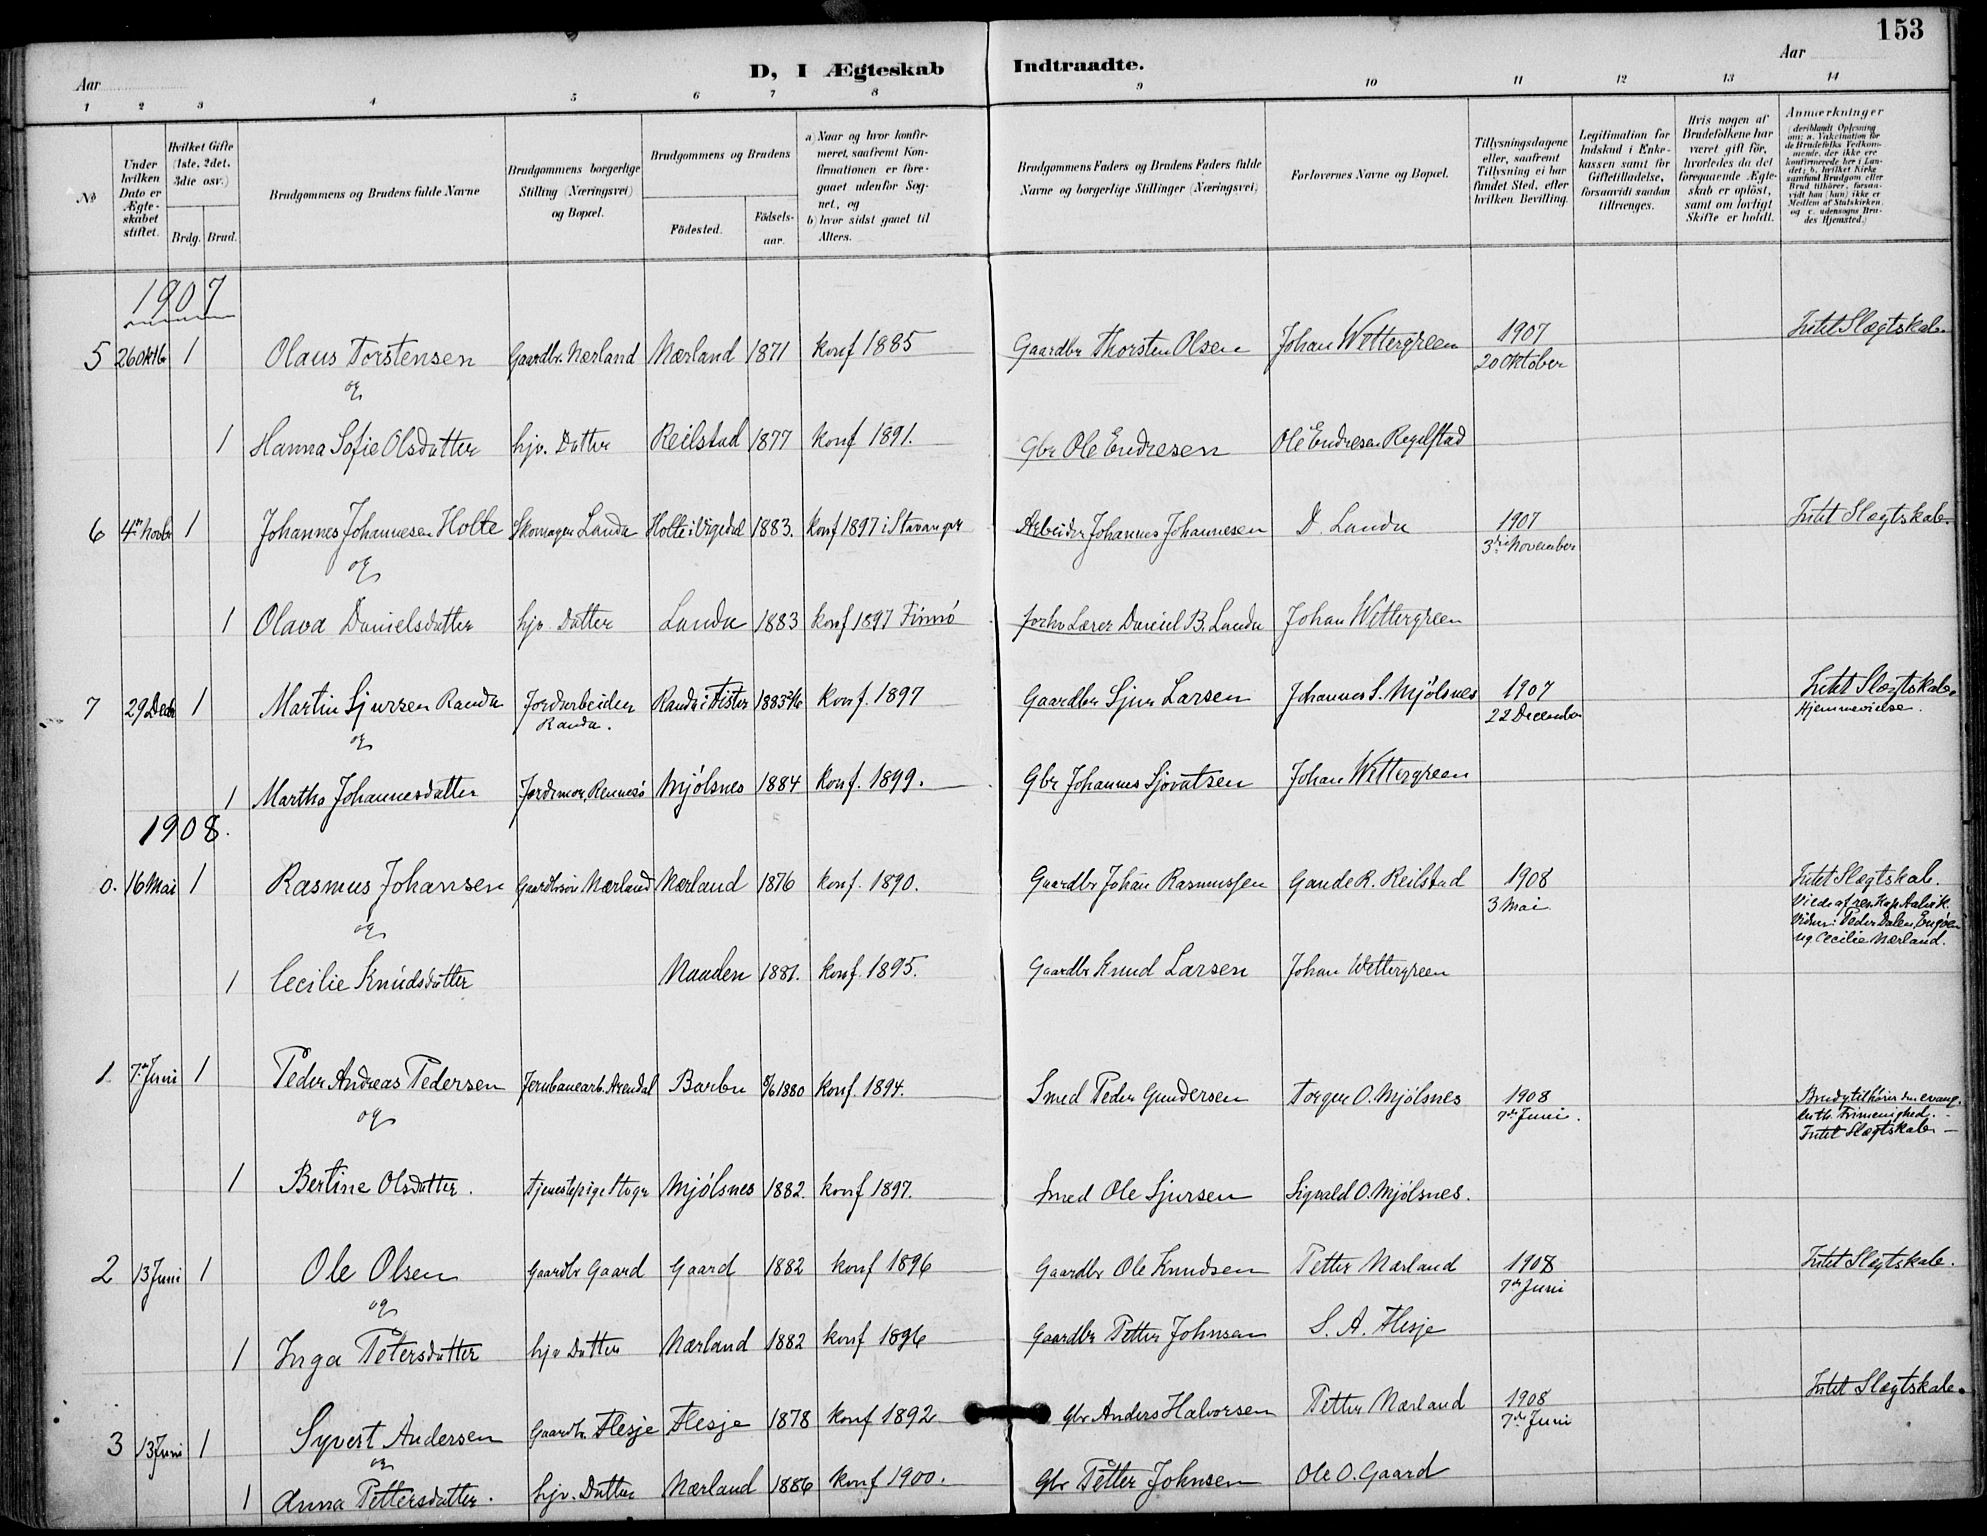 153
D, I Ægteskab Indtraadte.
Aar
Aar
1 2 3 4 5 6 7 8 9 10 11 12 13 14
No
Under hvilken Dato er Ægteskabet stiftet.
Hvilket Gifte (1ste, 2det, 3die osv.)
Brdg. Brud.
Brudgommens og Brudens fulde Navne
Brudgommens borgerlige Stilling (Næringsvei) og Bopæl.
Brudgommens og Brudens
Födested. Födselsaar.
a) Naar og hvor konfirmeret, saafremt Konfirmationen er foregaaet udenfor Sognet, og
b) hvor sidst gaaet til Alters.
Brudgommens Faders og Brudens Faders fulde Navne og borgerlige Stillinger (Næringsvei)
Forlovernes Navne og Bopæl.
Tillysningsdagene eller, saafremt Tillysning ei har fundet Sted, efter hvilken Bevilling.
Legitimation for Indskud i Enkekassen samt for Giftetilladelse, forsaavidt saadan tiltrænges.
Hvis nogen af Brudefolkene har været gift før, hvorledes da det foregaaende Ægteskab er opløst, samt om lovligt Skifte er holdt.
Anmærkninger
(deriblandt Oplysning om: a. Vakcination for de Brudefolks Vedkommende, der ikke ere konfirmerede her i Landet; b. hvilket Kirkesamfund Brudgom eller Brud tilhører, forsaavidt han (hun) ikke er Medlem af Statskirken, og c. udensogns Brudes Hjemsted.)
1907
5 26 Oktb 1 Olaus Torstensen Gaardbr. Nærland Nærland 1871 konf 1885 Gaardbr Thorsten Olsen Johan Wettergreen 1907 Intet Slægtskab.
20 Oktober
og
1 Hanna Sofie Olsdatter hjv. Datter Reilstad 1877 konf 1891. Gbr Ole Endresen Ole Endresen Regelstad
6 4de Novbr 1 Johannes Johannesen Holte Skomager Landa Holte i Vigedal 1883. konf 1897 i Stavanger Arbeider Johannes Johannesen D. Landa 1907 Intet Slægtskab.
3die November
og
1 Olava Danielsdatter hjv. Datter Landa 1883 konf 1897 Finnö forhv Lærer Daniel B. Landa Johan Wettergreen
7 29 Decb 1 Martin Sjursen Randa Jordarbeider Randa i Fister 1883 konf. 1897 Gaardbr Sjur Larsen Johannes S. Mjölsnes 1907 Intet Slægtskab.
Randa. 22 December Hjemmevielse.
og
1 Martha Johannesdatter Jordemor, Rennesö Mjölsnes 1884 konf. 1899. Gbr Johannes Sjovatsen Johan Wettergreen
1908.
0. 16 Mai 1 Rasmus Johansen Gaardbrsøn Nærland Nærland 1876 konf. 1890. Gaardbr Johan Rasmussen Gaude R. Reilstad 1908 Intet Slægtskab.
3 Mai Viede af res. Kap. Aalvik.
og Vidner: Peder Dalen, Engöen
og Cecilie Nærland.
1 Cecilie Knudsdatter Naaden 1881. konf. 1895. Gaardbr Knud Larsen Johan Wettergreen
1 7de Juni 1 Peder Andreas Pedersen Jernbanearb. Arendal Barbu 1880 konf. 1894. Smed Peder Gundersen Torger O. Mjölsnes 1908
7de Juni. Brudg tilhører den evang.
luth. Frimenighed.
Intet Slægtskab.
og
1 Bertine Olsdatter. Tjenestepige Stvgr Mjölsnes 1882. konf 1897. Smed Ole Sjursen Sigvald O. Mjölsnes.
2 13 Juni 1 Ole Olsen Gaardbr Gaard Gaard 1882 konf 1896 Gaardbr Ole Knudsen Petter Nærland 1908 Intet Slægtskab.
7de Juni
og
1 Inga Petersdatter hjv Datter Nærland 1882 konf 1896 Gaardbr Petter Johnsen S. A. Flesje
3 13 Juni 1 Syvert Andersen Gaardbr. Flesje Flesje 1878 konf 1892 Gbr Anders Halvorsen Petter Nærland 1908 Intet Slægtskab.
7de Juni
og
1 Anna Pettersdatter. hjv. Datter Nærland 1886 konf 1900. Gbr Petter Johnsen Ole O. Gaard